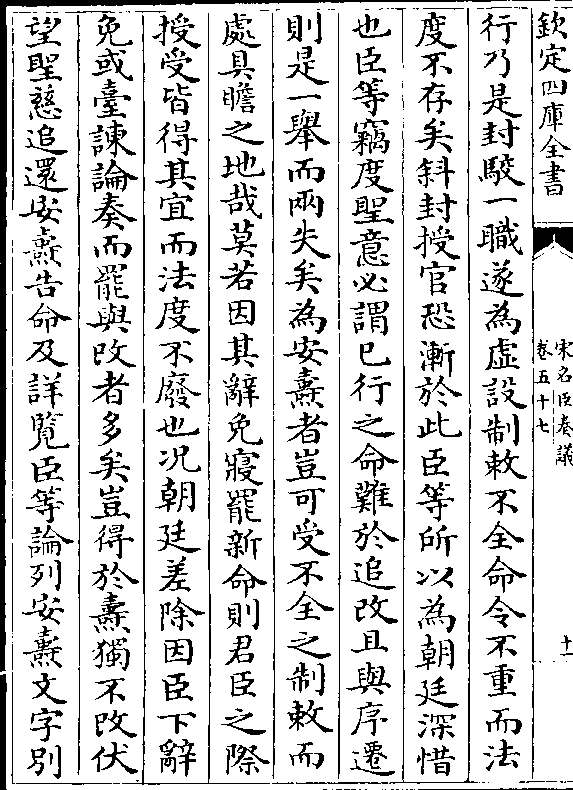 欽定四庫全書
宋名臣奏議
卷五十七
十一
行乃是封駮一職遂為虛設制敕不全命令不重而法
度不存矣斜封授官恐漸於此臣等所以為朝廷深惜
也臣等竊度聖意必謂已行之命難於追改且與序遷
則是一舉而兩失矣為安燾者豈可受不全之制敕而
處具瞻之地哉莫若因其辭免寢罷新命則君臣之際
授受皆得其宜而法度不廢也况朝廷差除因臣下辭
免或臺諫論奏而罷與改者多矣豈得於燾獨不改伏
望聖慈追還安燾告命及詳覽臣等論列安燾文字別